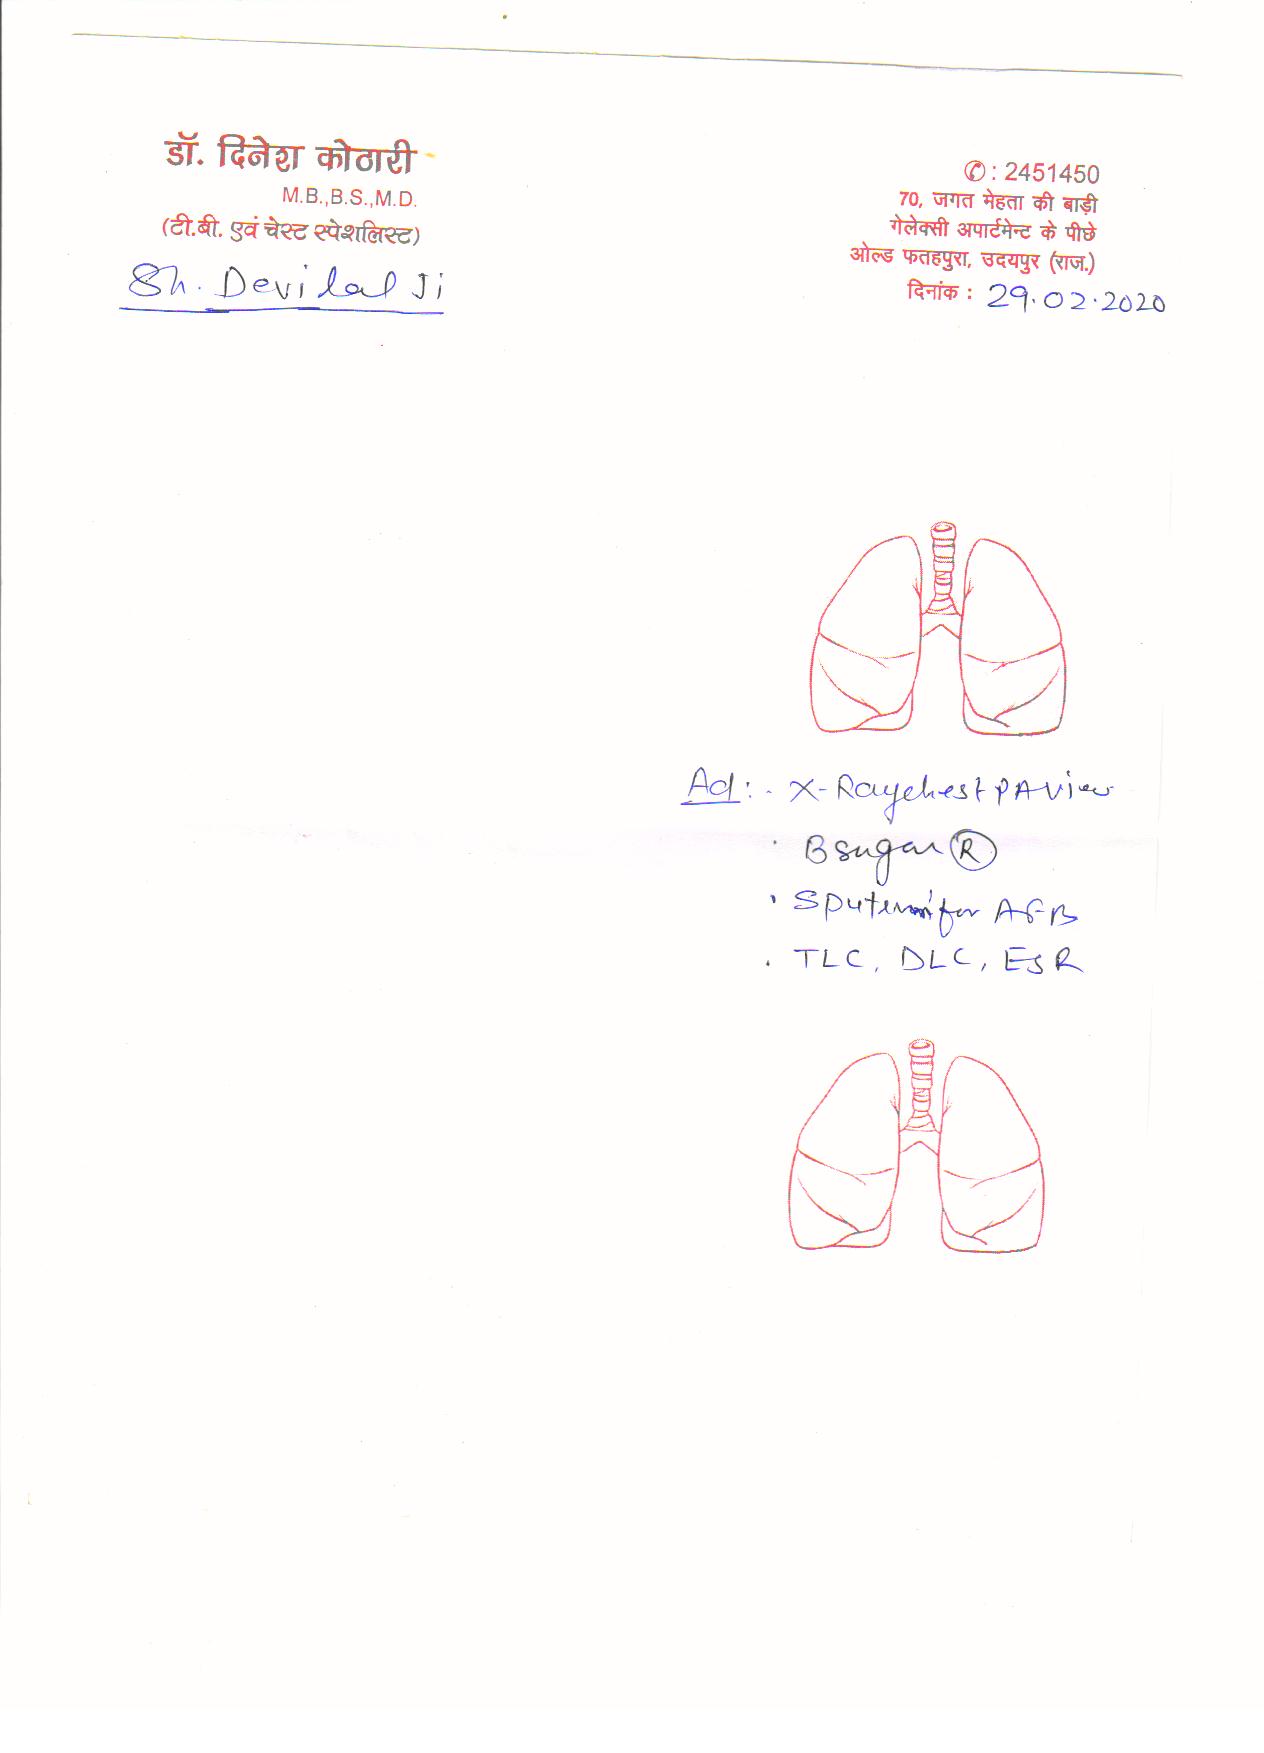 डॉ. दिनेश कोठारी
M.B.,B.S.,M.D.
(टी.बी. एवं चेस्ट स्पेशलिस्ट)
Sh. Devilal Ji
✆ : 2451450
70, जगत मेहता की बाड़ी
गेलेक्सी अपार्टमेन्ट के पीछे
ओल्ड फतहपुरा, उदयपुर (राज.)
दिनांक : 29.02.2020
Ad: - X-Ray chest PA View
· B sugar (R)
· Sputum for AFB
· TLC, DLC, ESR